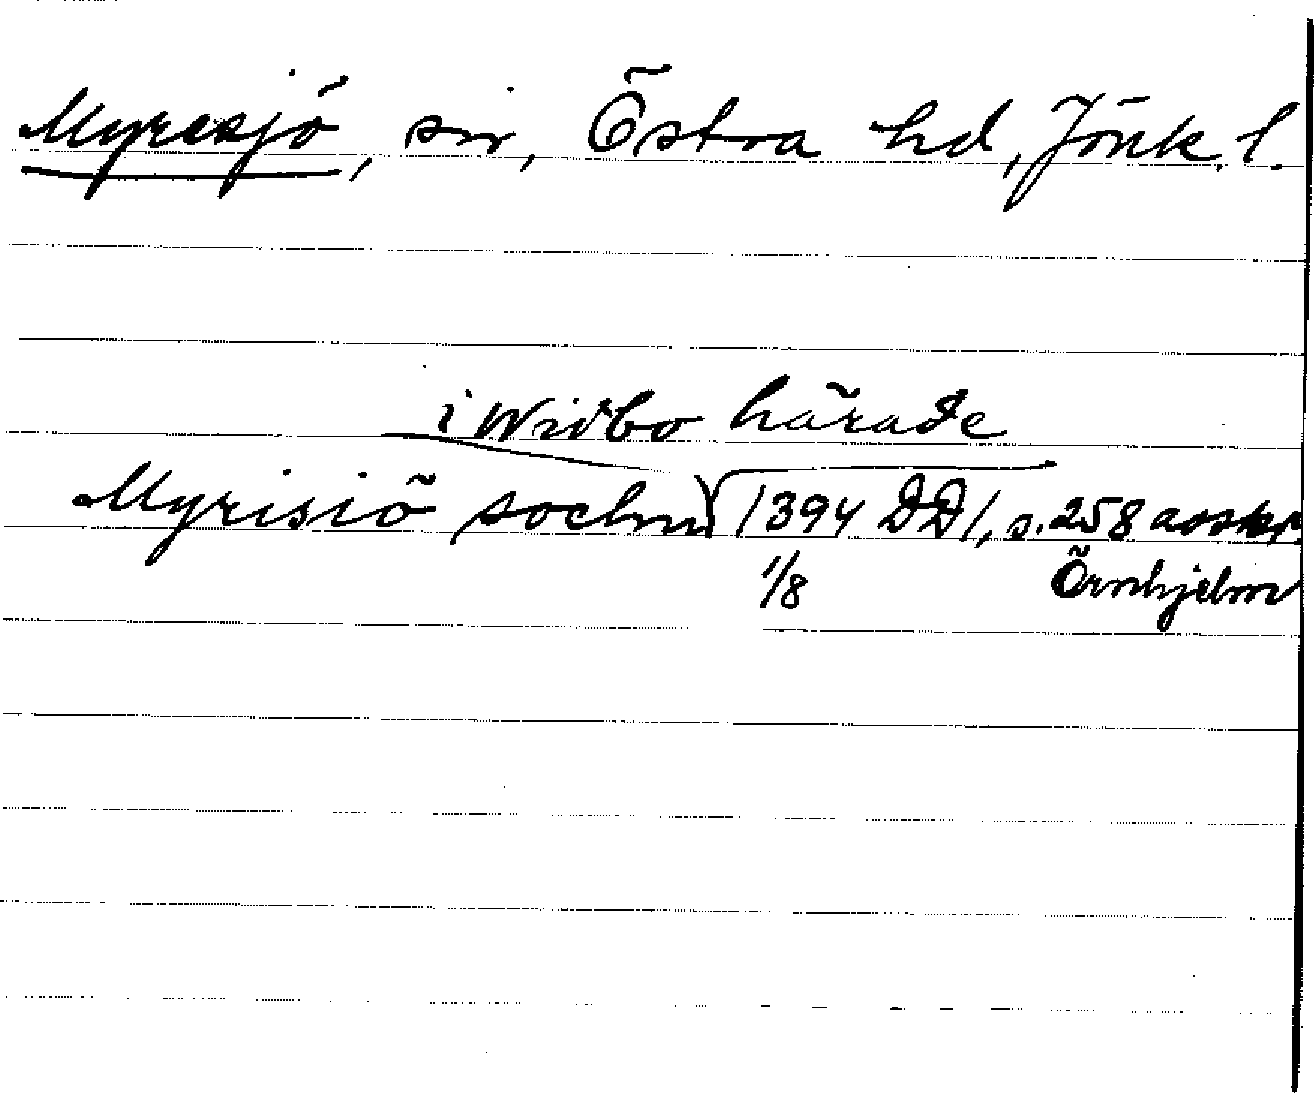 Myresjö, sn, Östra hd, Jönk. l.
i Widbo härade
Myrisiö sochn 1394 DD1, s. 258 avskr.
1/8 Örnhjelm